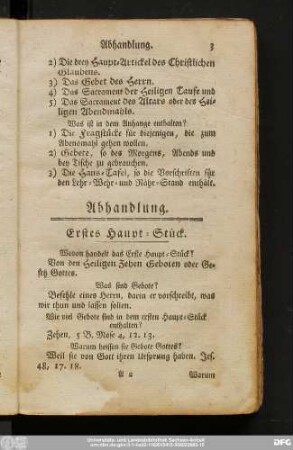 Abhandlung. 3
2) Die drey Haupt-Artickel des Christlichen
Glaubens.
3) Das Gebet des Herrn.
4) Das Sacrament der Heiligen Taufe und
5) Das Sacrament des Altars oder des Hei-
ligen Abendmahls.
Was ist in dem Anhange enthalten?
1) Die Fragstücke für diejenigen, die zum
Abendmahl gehen wollen.
2) Gebete, so des Morgens, Abends und
bey Tische zu gebrauchen.
3) Die Haus-Tafel, so die Vorschriften für
den Lehr-Wehr- und Nähr-Stand enthält.
Abhandlung.
Erstes Haupt-Stück.
Wovon handelt das Erste Haupt-Stück?
Von den Heiligen Zehen Geboten oder Ge-
setz Gottes.
Was sind Gebote?
Befehle eines Herrn, darin er vorschreibt, was
wir thun und lassen sollen.
Wie viel Gebote sind in dem ersten Haupt-Stück
enthalten?
Zehen, 5 B. Mose 4, 12. 13.
Warum heissen sie Gebote Gottes?
Weil sie von Gott ihren Ursprung haben. Jes.
48, 17. 18.
A 2 Warum
Universitäts- und Landesbibliothek Sachsen-Anhalt